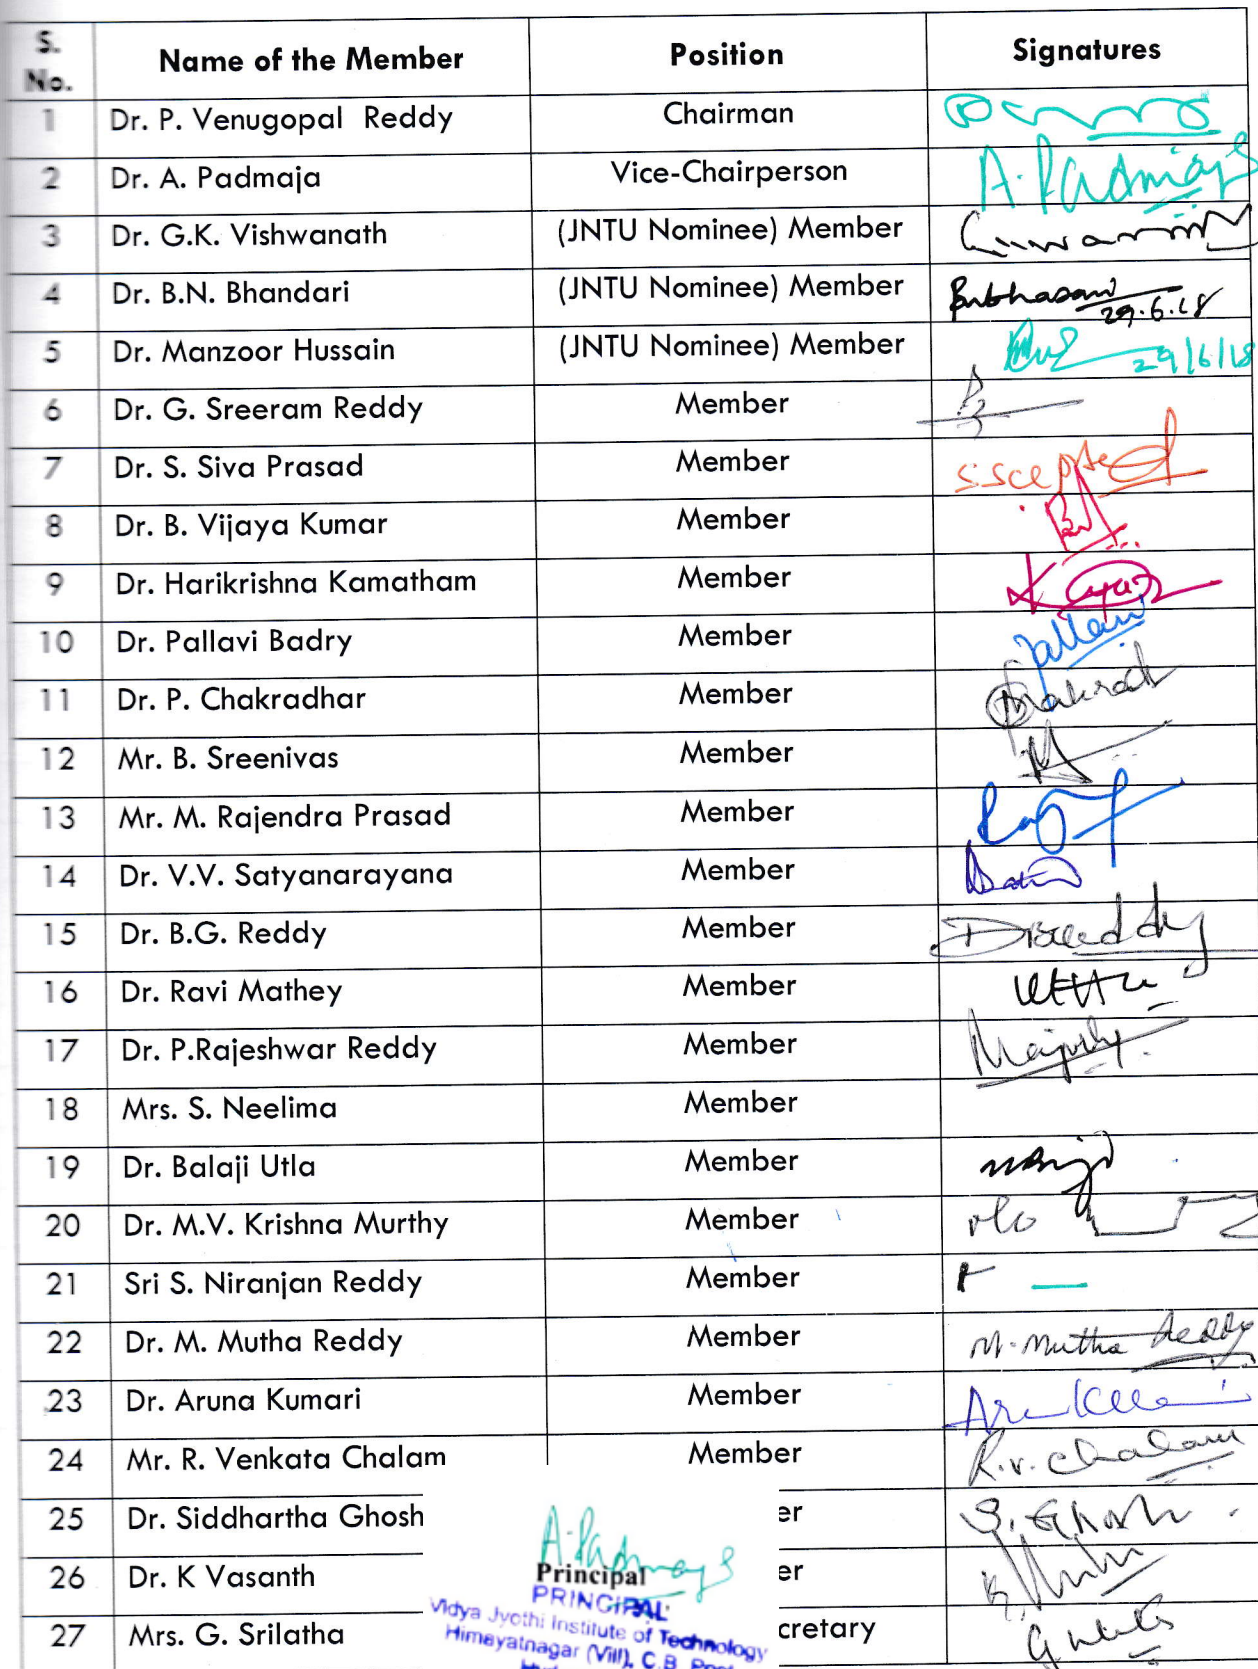 S. No. Name of the Member Position Signatures
1 Dr. P. Venugopal Reddy Chairman
2 Dr. A. Padmaja Vice-Chairperson A. Padmaja
3 Dr. G.K. Vishwanath (JNTU Nominee) Member
4 Dr. B.N. Bhandari (JNTU Nominee) Member 29.6.18
5 Dr. Manzoor Hussain (JNTU Nominee) Member 29/6/18
6 Dr. G. Sreeram Reddy Member
7 Dr. S. Siva Prasad Member
8 Dr. B. Vijaya Kumar Member
9 Dr. Harikrishna Kamatham Member
10 Dr. Pallavi Badry Member Pallavi
11 Dr. P. Chakradhar Member
12 Mr. B. Sreenivas Member
13 Mr. M. Rajendra Prasad Member
14 Dr. V.V. Satyanarayana Member
15 Dr. B.G. Reddy Member
16 Dr. Ravi Mathey Member
17 Dr. P.Rajeshwar Reddy Member
18 Mrs. S. Neelima Member
19 Dr. Balaji Utla Member
20 Dr. M.V. Krishna Murthy Member
21 Sri S. Niranjan Reddy Member
22 Dr. M. Mutha Reddy Member M. Mutha Reddy
23 Dr. Aruna Kumari Member
24 Mr. R. Venkata Chalam Member R.V. Chalam
25 Dr. Siddhartha Ghosh er S. Ghosh
26 Dr. K Vasanth er
27 Mrs. G. Srilatha cretary
A. Padmaja
Principal
PRINCIPAL
Vidya Jyothi Institute of Technology
Himayatnagar (Vill), C.B. Post